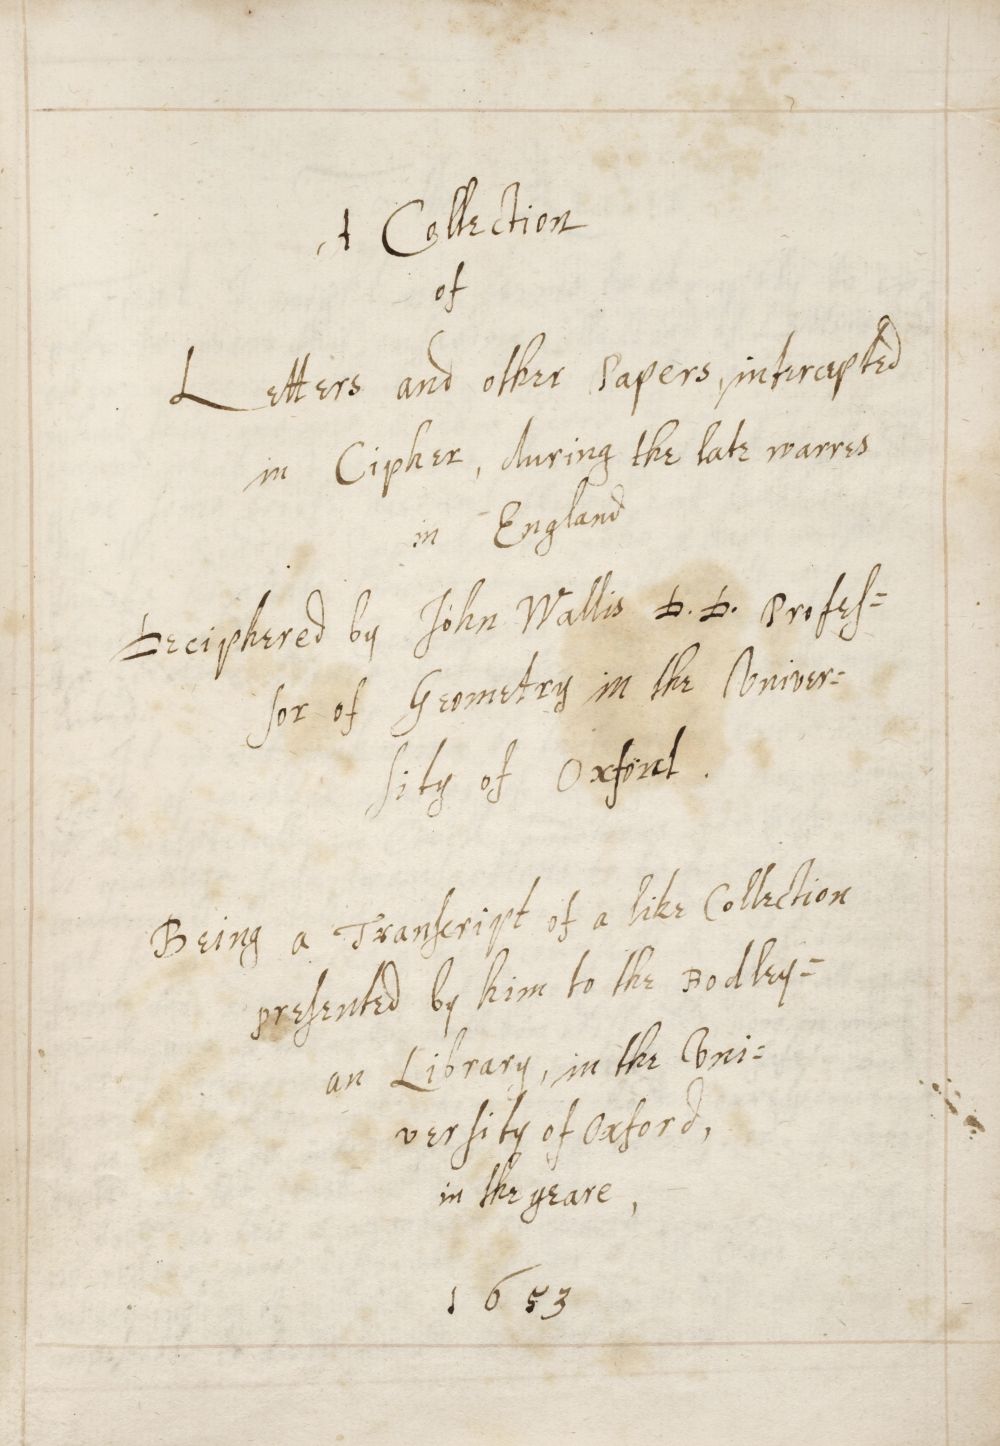 A Collection
of
Letters and other Papers, intercepted
in Cipher, during the late warres
in England
Deciphered by John Wallis D. D. Profes=
sor of Geometry in the Univer=
sity of Oxford.
Being a Transcript of a like Collection
presented by him to the Bodley=
an Library, in the Uni=
versity of Oxford,
in the yeare,
1653